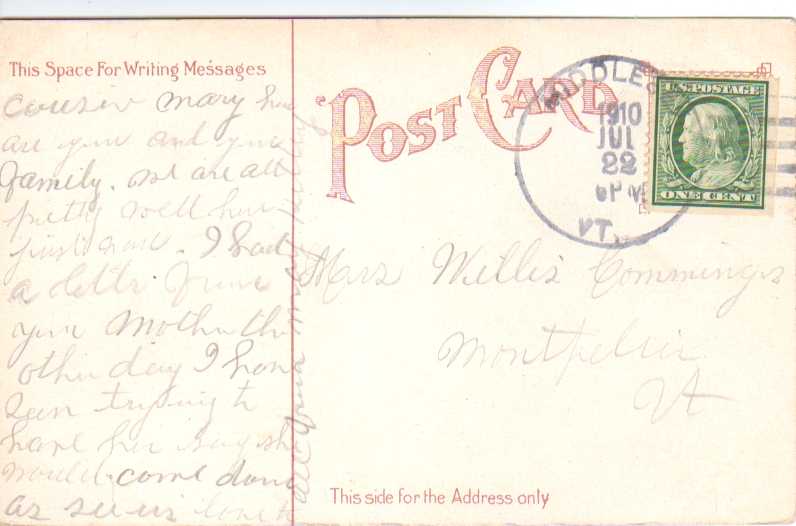 This Space For Writing Messages
POST CARD
MIDDLES
1910
JUL
22
6 P M
VT.
U.S. POSTAGE
ONE CENT
cousin Mary how
are you and your
family. we are all
pretty well here
just now. I had
a letter from
your Mother the
other day I have
been trying to
have her say she
would come down
as see us love to
all your
Mrs Willis Commings
Montpelier
Vt
This side for the Address only